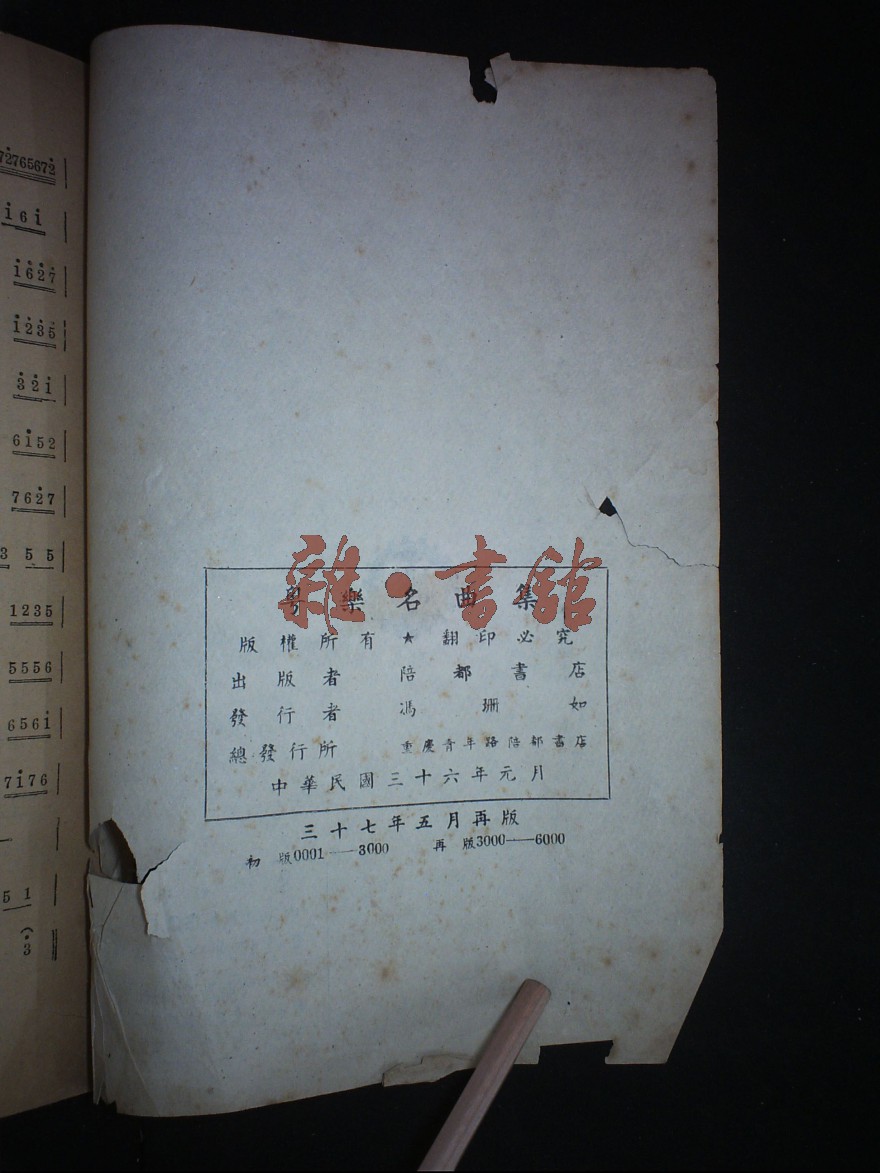 72765672
i6i
1627
1235
321
6152
7627
3 55
1235
5556
6561
7176
51
3
雜·書館
粵樂名曲集
版權所有★翻印必究
出版者 陪都書店
發行者 馮珊如
總發行所 重慶青年路陪都書店
中華民國三十六年元月
三十七年五月再版
初 版0001——3000 再 版3000——6000